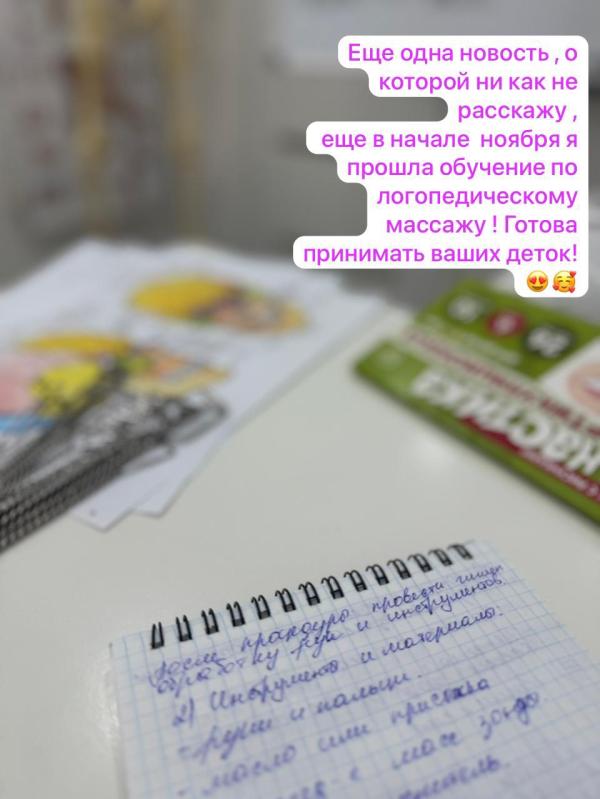 Еще одна новость , о
которой ни как не
расскажу ,
еще в начале ноября я
прошла обучение по
логопедическому
массажу ! Готова
принимать ваших деток!
😍🥰
настика
после процедуры провести
обработку рук и инструментов.
2) Инструменты и материалы.
- руки и пальцы.
- масло или присыпка
- с масс зонда.